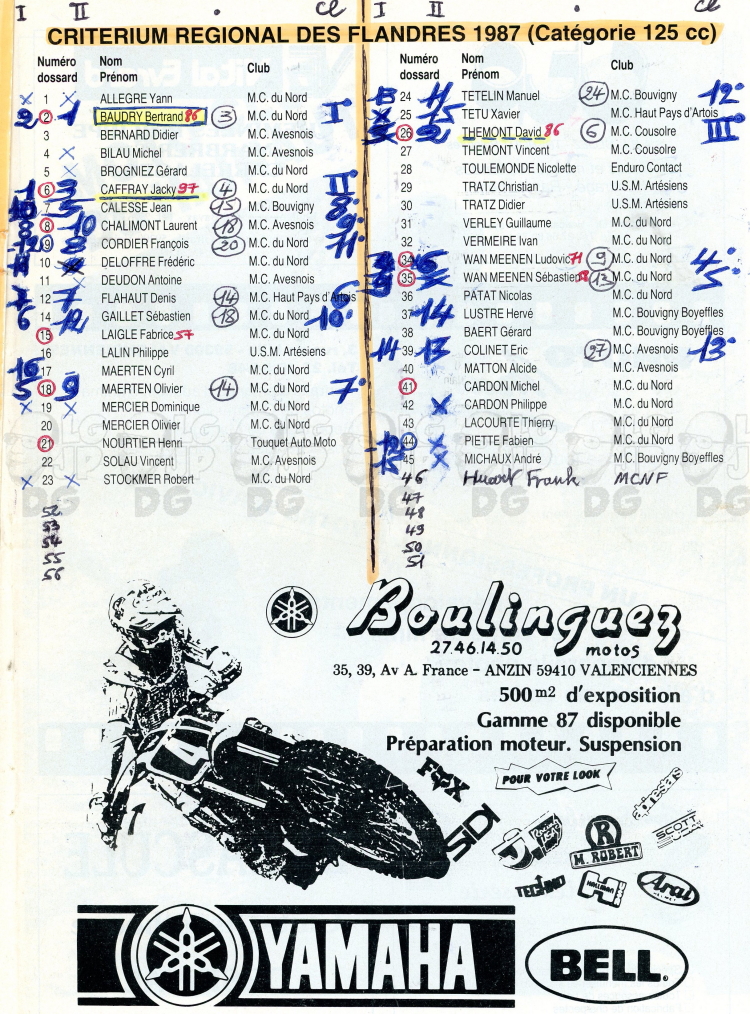 I II • cl I II • cl
CRITERIUM REGIONAL DES FLANDRES 1987 (Catégorie 125 cc)
Numéro dossard Nom Prénom Club
1 ALLEGRE Yann M.C. du Nord
2 1 2 BAUDRY Bertrand 86 3 M.C. du Nord I°
3 BERNARD Didier M.C. Avesnois
4 BILAU Michel M.C. du Nord
5 BROGNIEZ Gérard M.C. du Nord
1 6 3 CAFFRAY Jacky 97 4 M.C. du Nord II°
10 7 5 CALESSE Jean 15 M.C. Bouvigny 8°
8 8 10 CHALIMONT Laurent 18 M.C. Avesnois 9°
12 9 8 CORDIER François 20 M.C. du Nord 11°
11 10 DELOFFRE Frédéric M.C. du Nord
11 DEUDON Antoine M.C. Avesnois
7 12 7 FLAHAUT Denis 14 M.C. Haut Pays d'Artois 6°
6 14 12 GAILLET Sébastien 18 M.C. du Nord 10°
15 LAIGLE Fabrice 57 M.C. du Nord
16 LALIN Philippe U.S.M. Artésiens
16 17 MAERTEN Cyril M.C. du Nord
5 18 9 MAERTEN Olivier 14 M.C. du Nord 7°
19 MERCIER Dominique M.C. du Nord
20 MERCIER Olivier M.C. du Nord
21 NOURTIER Henri Touquet Auto Moto
22 SOLAU Vincent M.C. Avesnois
23 STOCKMER Robert M.C. du Nord
52
53
54
55
56
Numéro dossard Nom Prénom Club
13 24 11 TETELIN Manuel 24 M.C. Bouvigny 12°
25 15 TETU Xavier M.C. Haut Pays d'Artois
26 2 THEMONT David 86 6 M.C. Cousolre III°
27 THEMONT Vincent M.C. Cousolre
28 TOULEMONDE Nicolette Enduro Contact
29 TRATZ Christian U.S.M. Artésiens
30 TRATZ Didier U.S.M. Artésiens
31 VERLEY Guillaume M.C. du Nord
32 VERMEIRE Ivan M.C. du Nord
34 6 WAN MEENEN Ludovic 71 9 M.C. du Nord 4°
35 WAN MEENEN Sébastien 13 M.C. du Nord 5°
36 PATAT Nicolas M.C. du Nord
37 14 LUSTRE Hervé M.C. Bouvigny Boyeffles
38 BAERT Gérard M.C. Bouvigny Boyeffles
14 39 13 COLINET Eric 27 M.C. Avesnois 13°
40 MATTON Alcide M.C. Avesnois
41 CARDON Michel M.C. du Nord
42 CARDON Philippe M.C. du Nord
43 LACOURTE Thierry M.C. du Nord
44 PIETTE Fabien M.C. du Nord
15 45 MICHAUX André M.C. Bouvigny Boyeffles
46 Huart Frank MCNF
47
48
49
50
51
Boulinguez
27.46.14.50 motos
35, 39, Av A. France - ANZIN 59410 VALENCIENNES
500 m2 d'exposition
Gamme 87 disponible
Préparation moteur. Suspension
FOX
POUR VOTRE LOOK
SCOTT
R
M. ROBERT
TECHNO
HALLMAN
Arai
4
YAMAHA
BELL.
LG JPJP DG